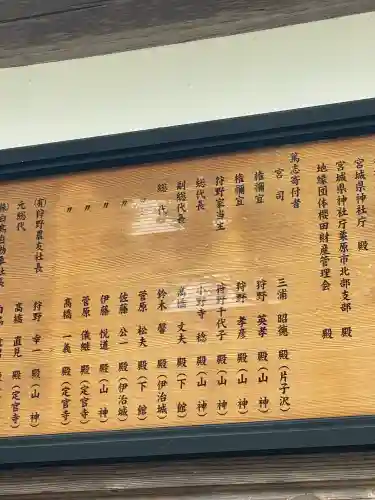 宮城県神社庁 殿
宮城県神社庁栗原市北部支部 殿
地縁団体櫻田財産管理会 殿
萬志寄付者
宮司 三浦 昭徳 殿(片子沢)
権禰宜 狩野 英孝 殿(山神)
権禰宜 狩野 孝彦 殿(山神)
狩野家当主 狩野千代子 殿(山神)
総代長 小野寺 稔 殿(山神)
副総代長 髙橋 丈夫 殿(下館)
総代 鈴木 馨 殿(伊治城)
〃 菅原 松夫 殿(下館)
〃 佐藤 公一 殿(伊治城)
〃 伊藤 悦道 殿(山神)
〃 菅原 儀継 殿(定官寺)
〃 髙橋 一義 殿(定官寺)
(有)狩野農友社長 狩野 幸一 殿(山神)
元総代 髙橋 直見 殿(定官寺)